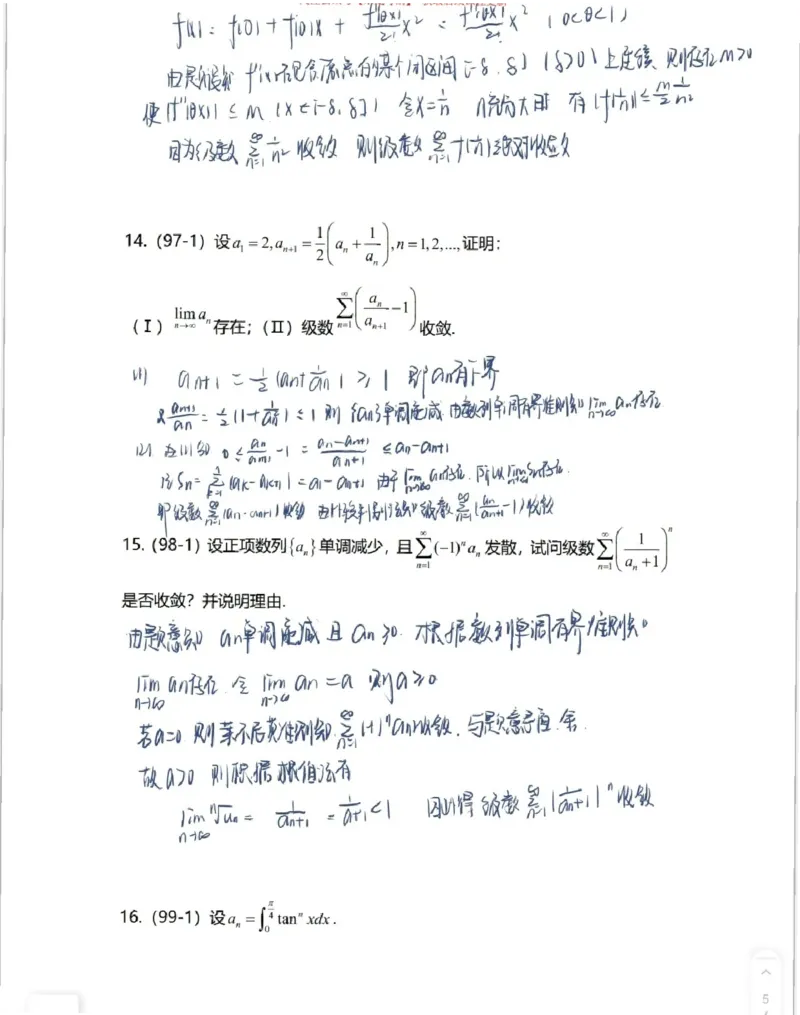 f(x) = f(0) + f'(0)x + f''(θx)/2! x² = f''(θx)/2! x² (0<θ<1)
由题设知 f''(x)在包含原点的某个闭区间 [-δ, δ] (δ>0) 上连续, 则存在 M>0
使 |f''(θx)| ≤ M (x∈[-δ, δ]) 令x=1/n n充分大时 有 |f(1/n)| ≤ M/2 · 1/n²
因为级数 ∑_{n=1}^{∞} 1/n² 收敛 则级数 ∑_{n=1}^{∞} f(1/n) 绝对收敛
14. (97-1) 设 a₁ = 2, a_{n+1} = 1/2 (a_n + 1/a_n), n = 1, 2, ..., 证明:
(Ⅰ) lim_{n→∞} a_n 存在; (Ⅱ) 级数 ∑_{n=1}^{∞} (a_n/a_{n+1} − 1) 收敛.
(1) a_{n+1} = 1/2 (a_n + 1/a_n) ≥ 1 即 a_n有下界
又 a_{n+1}/a_n = 1/2 (1 + 1/a_n²) ≤ 1 则 {a_n}单调递减 由数列单调有界准则知 lim_{n→∞} a_n存在
(2) 在(1)知 0 ≤ a_n/a_{n+1} − 1 = (a_n − a_{n+1})/a_{n+1} ≤ a_n − a_{n+1}
记 S_n = ∑_{k=1}^{n} (a_k − a_{k+1}) = a₁ − a_{n+1} 由于 lim_{n→∞} a_n存在, 所以 lim_{n→∞} S_n存在.
即级数 ∑_{n=1}^{∞} (a_n − a_{n+1}) 收敛 由比较判别法知 级数 ∑_{n=1}^{∞} (a_n/a_{n+1} − 1) 收敛
15. (98-1) 设正项数列{a_n}单调减少, 且 ∑_{n=1}^{∞} (−1)ⁿ a_n 发散, 试问级数 ∑_{n=1}^{∞} (1/(a_n + 1))ⁿ
是否收敛? 并说明理由.
由题意知 a_n单调递减 且 a_n ≥ 0. 根据数列单调有界准则知
lim_{n→∞} a_n存在 令 lim_{n→∞} a_n = a 则 a ≥ 0
若 a=0 则莱布尼兹准则知 ∑_{n=1}^{∞} (−1)ⁿ a_n 收敛, 与题意矛盾, 舍.
故 a>0 则根据根值法有
lim_{n→∞} ⁿ√u_n = 1/(a_n+1) = 1/(a+1) < 1 因此得 级数 ∑_{n=1}^{∞} (1/(a_n+1))ⁿ 收敛
16. (99-1) 设 a_n = ∫₀^{π/4} tanⁿ xdx .
5